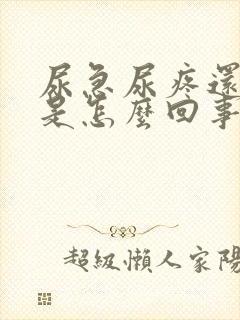 尿急尿疼還
是怎麼回事
超級懶人家陽